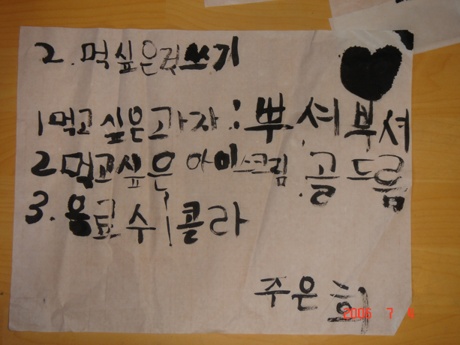 2. 먹싶은것쓰기
1먹고싶은과자: 뿌셔부셔
2먹고싶은 아이스크림 골드름
3. 음료수 | 콜라
주은희
2006 7